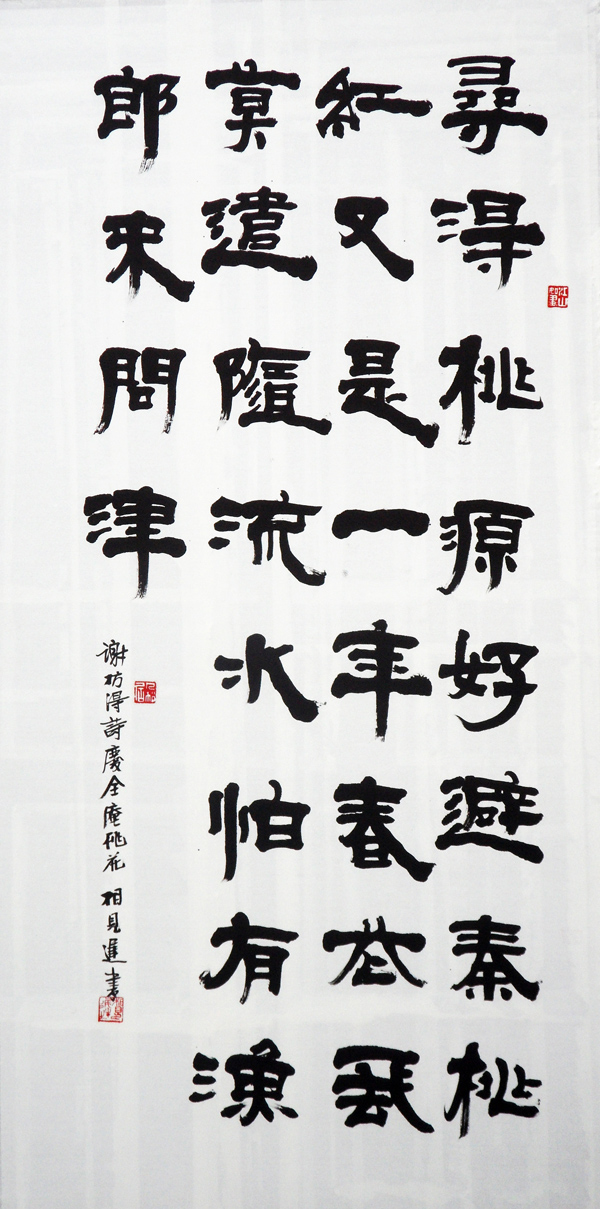 尋得桃源好避秦桃
紅又是一年春花飛
莫遣隨流水怕有漁
郎来問津
謝枋得詩慶全庵桃花 相見進書